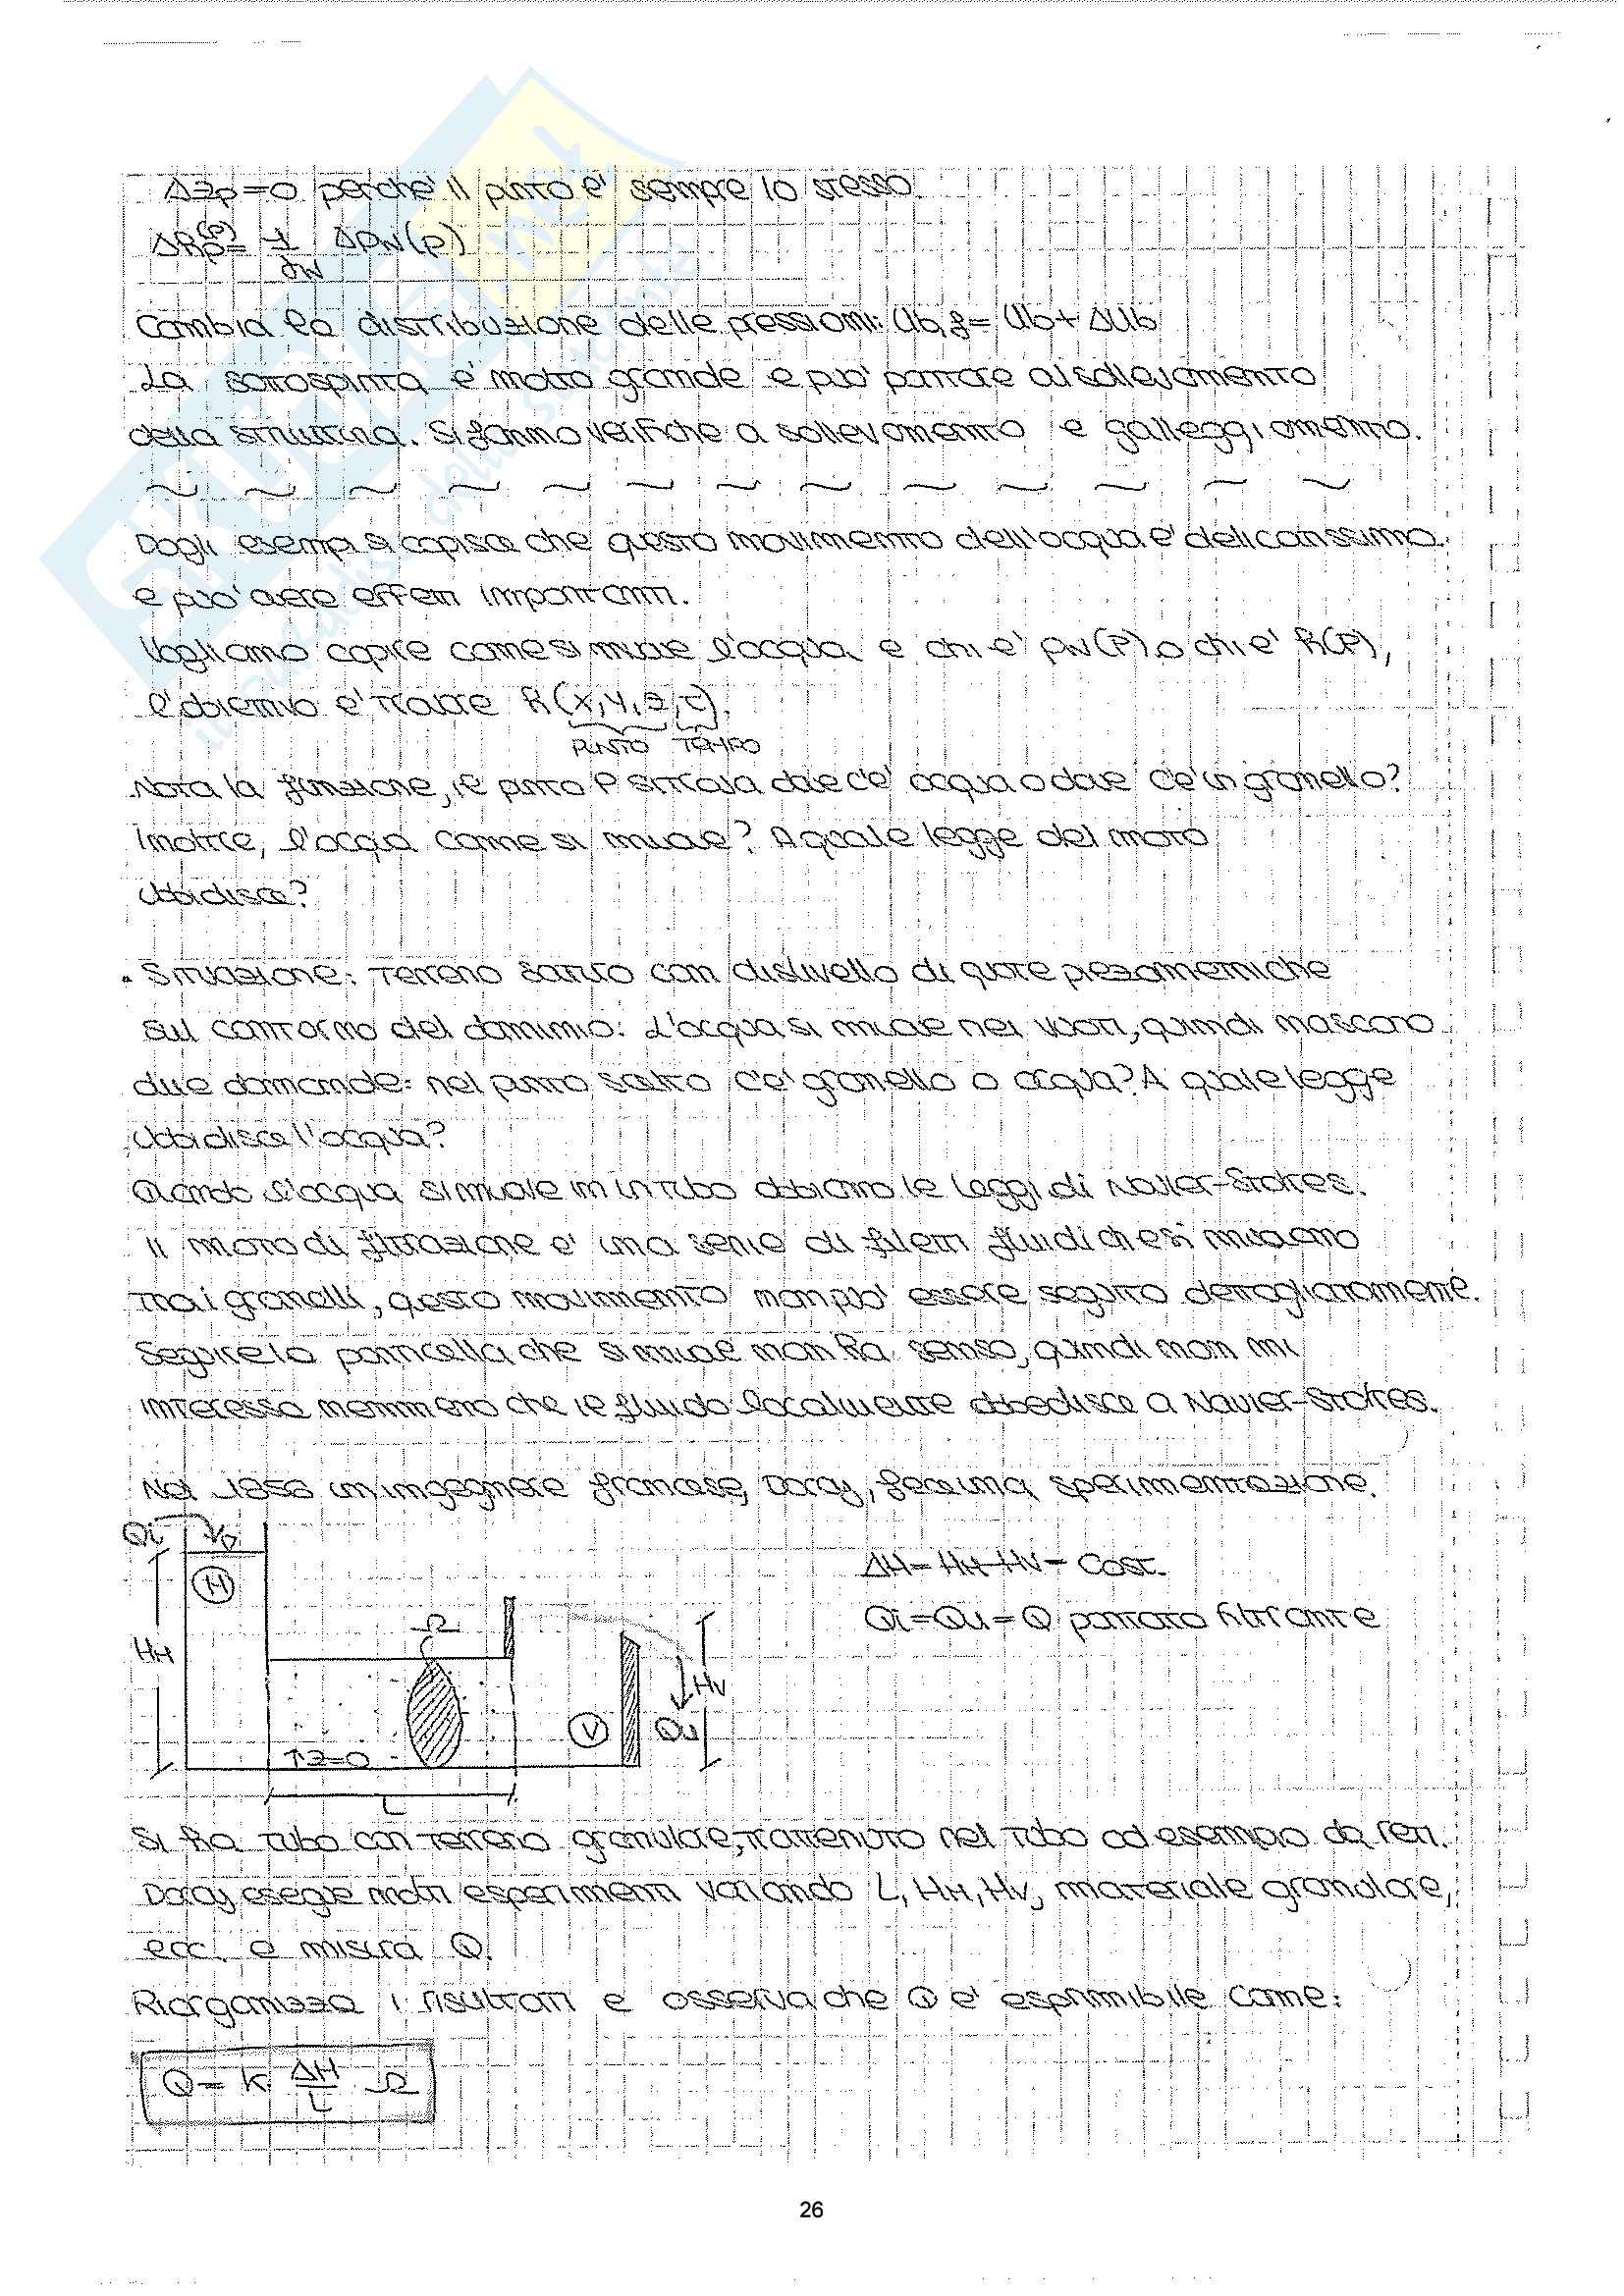 Δzp=0 perche' il punto e' sempre lo stesso.
Δhp(P)= 1/γw Δpw(P)
Cambia la distribuzione delle pressioni: Ub,f= Ub+ΔUb
La sottospinta e' molto grande e puo' portare al sollevamento
della struttura. Si fanno verifiche a sollevamento e galleggiamento.
~ ~ ~ ~ ~ ~ ~ ~ ~ ~ ~ ~ ~
Dagli esempi si capisce che questo movimento dell'acqua e' delicatissimo
e puo' avere effetti importanti.
Vogliamo capire come si muove l'acqua e chi e' pw(P) o chi e' h(P),
l'obiettivo e' trovare h(x,y,z,t).
PUNTO TEMPO
Nota la funzione, il punto P si trova dove c'e' acqua o dove c'e' un granello?
Inoltre, l'acqua come si muove? A quale legge del moto
ubbidisce?
• Situazione: terreno saturo con dislivello di quote piezometriche
sul contorno del dominio. L'acqua si muove nei vuoti, quindi nascono
due domande: nel punto scelto c'e' granello o acqua? A quale legge
ubbidisce l'acqua?
Quando l'acqua si muove in un tubo abbiamo le leggi di Navier-Stokes.
Il moto di filtrazione e' una serie di filetti fluidi che si muovono
tra i granelli, questo movimento non puo' essere seguito dettagliatamente.
Seguire la particella che si muove non ha senso, quindi non mi
interessa nemmeno che il fluido localmente obbedisce a Navier-Stokes.
Nel 1856 un ingegnere francese, Darcy, fece una sperimentazione.
Qi Vo
M
ΔH= HM-HV= cost.
Qi=Qu=Q portata filtrante
Ω
HM
HV
V
Qu
z=0
L
Si ha tubo con terreno granulare, trattenuto nel tubo ad esempio da reti.
Darcy esegue molti esperimenti variando L, HM, HV, materiale granulare,
ecc. e misura Q.
Riorganizza i risultati e osserva che Q e' esprimibile come:
Q= k ΔH/L Ω
26